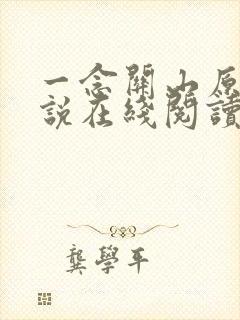 一念關山原
說在綫閱讀
龔學平